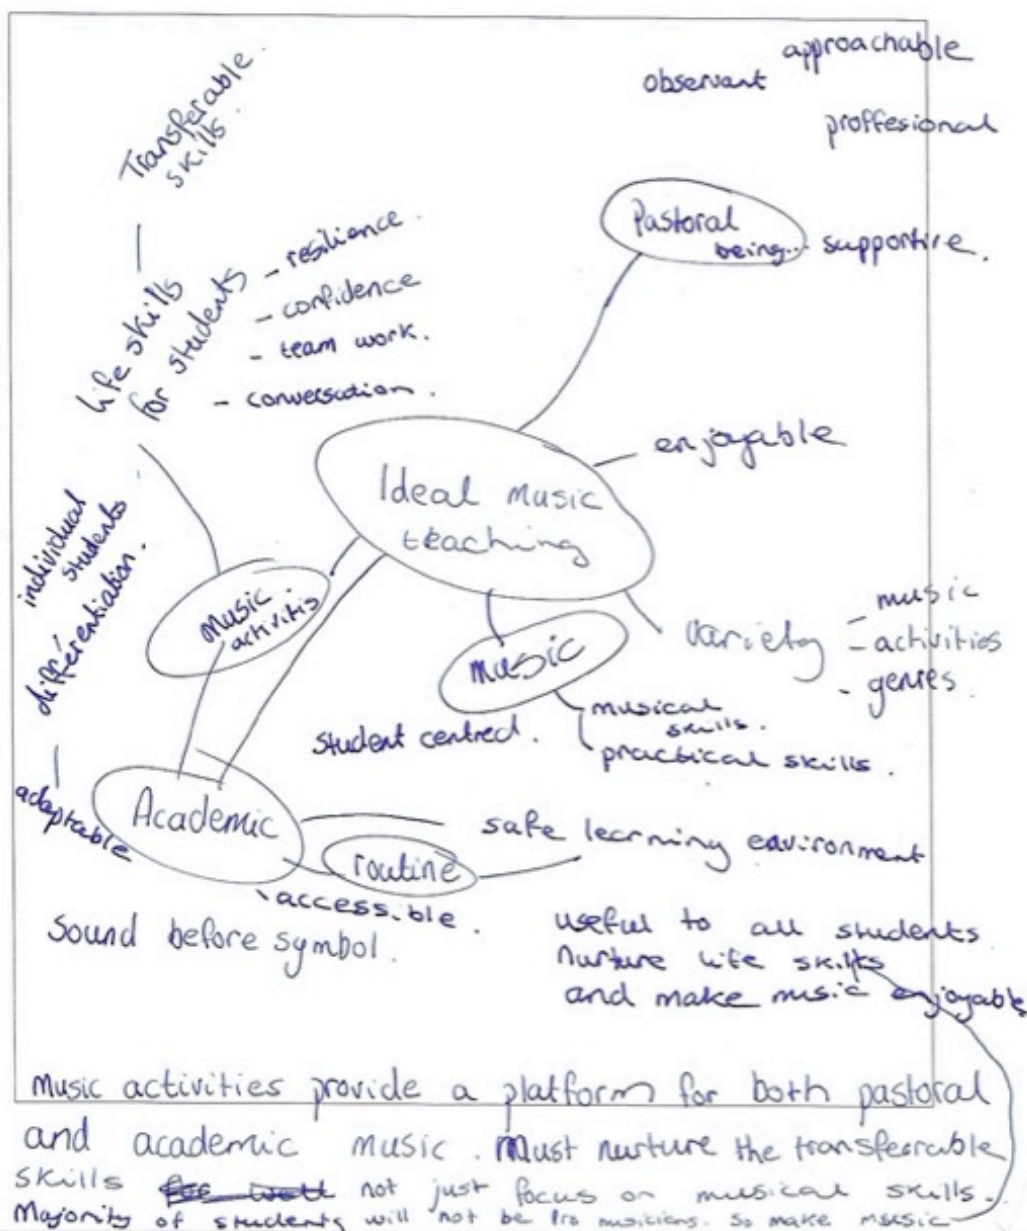 approachable
observant
proffesional
Transferable
skills
Pastoral
being... supportive.
life skills
for students
- resilience.
- confidence
- team work.
- conversation.
enjoyable
Ideal music
teaching
individual
students
differentiation.
adaptable
music
activitis
music
variety
- music
- activities
- genres
musical
skills.
practical skills.
student centred.
Academic
safe learning environment
routine
accessible.
Sound before symbol.
useful to all students
Nurture life skills
and make music enjoyable
Music activities provide a platform for both pastoral
and academic music. Must nurture the transferrable
skills not just focus on musical skills.
Majority of students will not be pro musicians. So make music